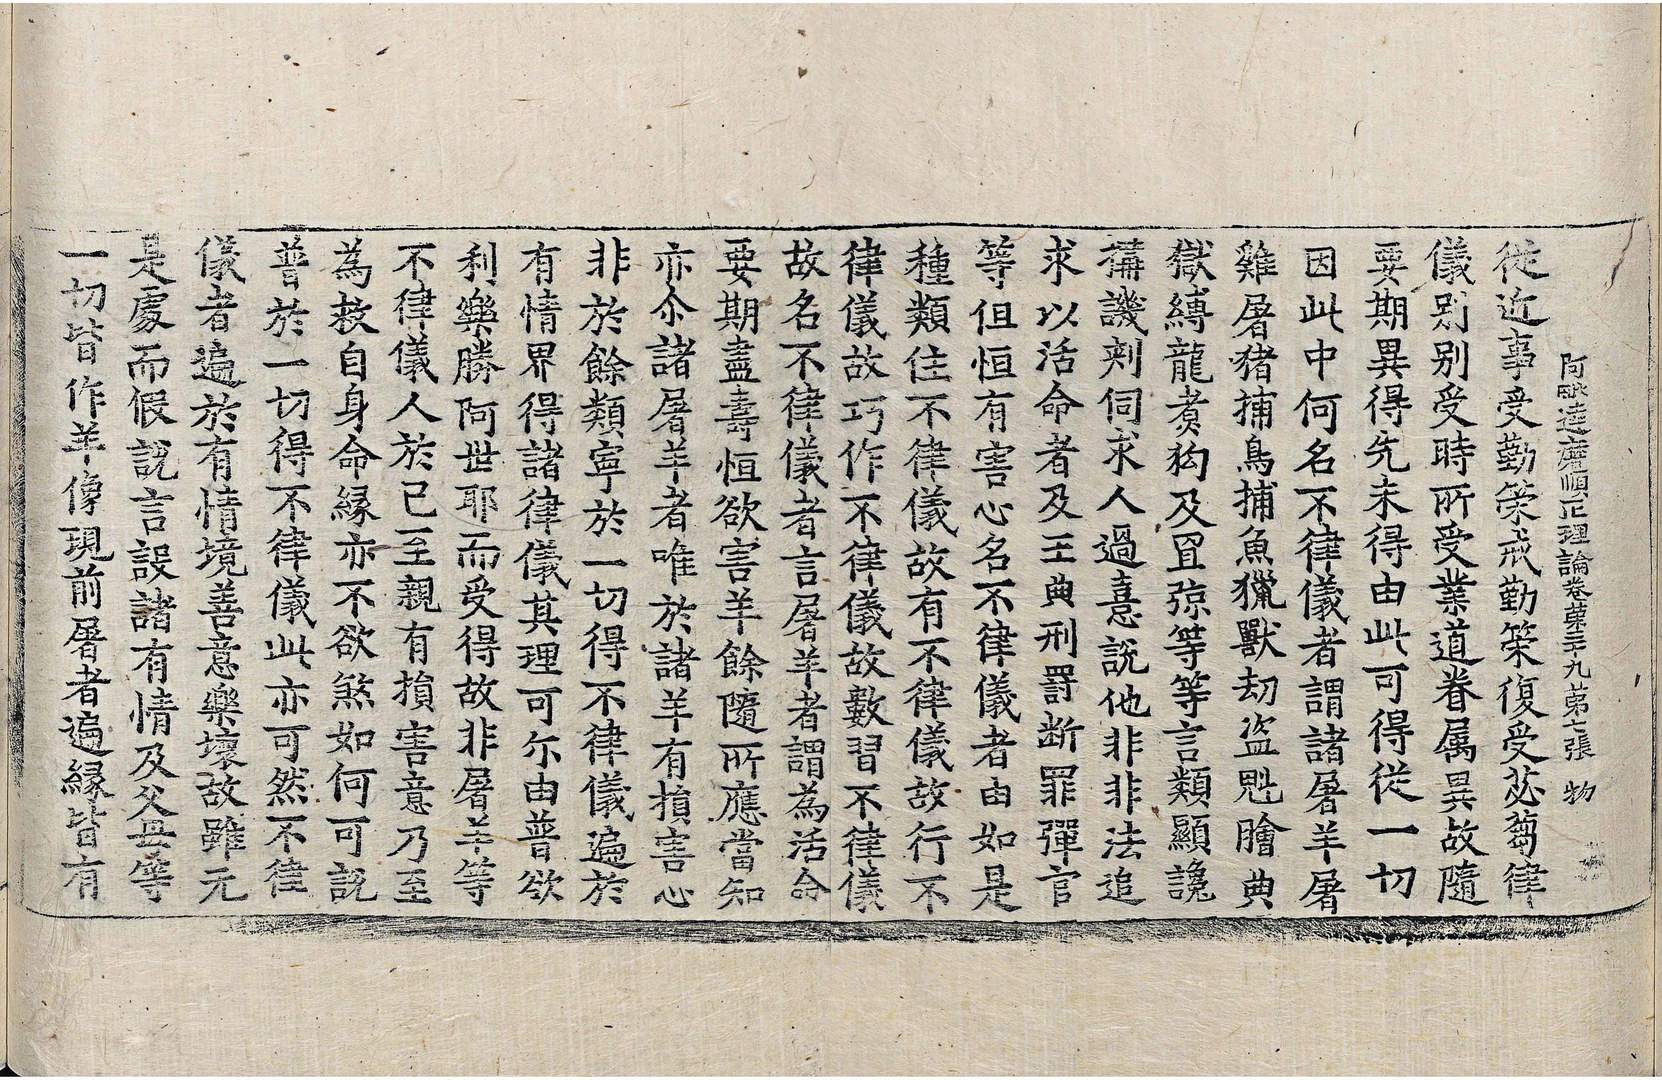 阿毗達磨順正理論卷第三十九 第七張 物
從近事受勤策戒勤策復受苾蒭律
儀別別受時所受業道眷属異故隨
要期異得先未得由此可得從一切
因此中何名不律儀者謂諸屠羊屠
雞屠猪捕鳥捕魚獵獸劫盗魁膾典
獄縛龍煑狗及罝弶等等言類顯讒
搆譏刾伺求人過憙說他非非法追
求以活命者及王典刑罰断罪彈官
等但恒有害心名不律儀者由如是
種類住不律儀故有不律儀故行不
律儀故巧作不律儀故數習不律儀
故名不律儀者言屠羊者謂為活命
要期盡壽恒欲害羊餘隨所應當知
亦尒諸屠羊者唯於諸羊有損害心
非於餘類寧於一切得不律儀遍於
有情界得諸律儀其理可尒由普欲
利樂勝阿世耶而受得故非屠羊等
不律儀人於己至親有損害意乃至
為救自身命緣亦不欲煞如何可說
普於一切得不律儀此亦可然不律
儀者遍於有情境善意樂壞故雖无
是處而假說言設諸有情及父母等
一切皆作羊像現前屠者遍緣皆有